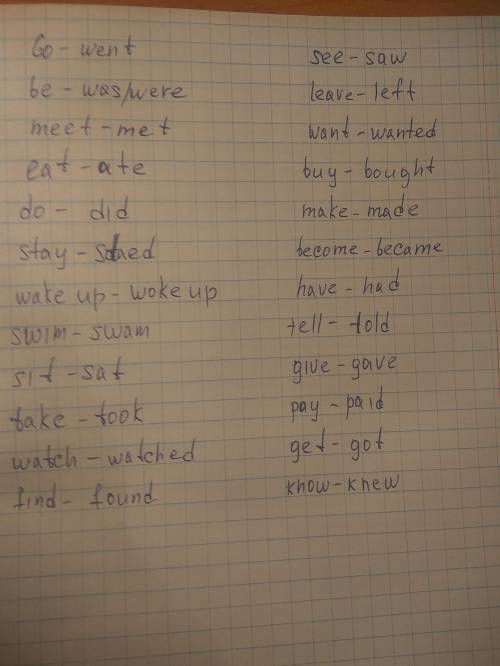 Go - went
be - was/were
meet - met
eat - ate
do - did
stay -
wake up - woke up
swim - swam
sit - sat
take - took
watch - watched
find - found
see - saw
leave - left
want - wanted
buy - bought
make - made
become - became
have - had
tell - told
give - gave
pay - paid
get - got
know - knew